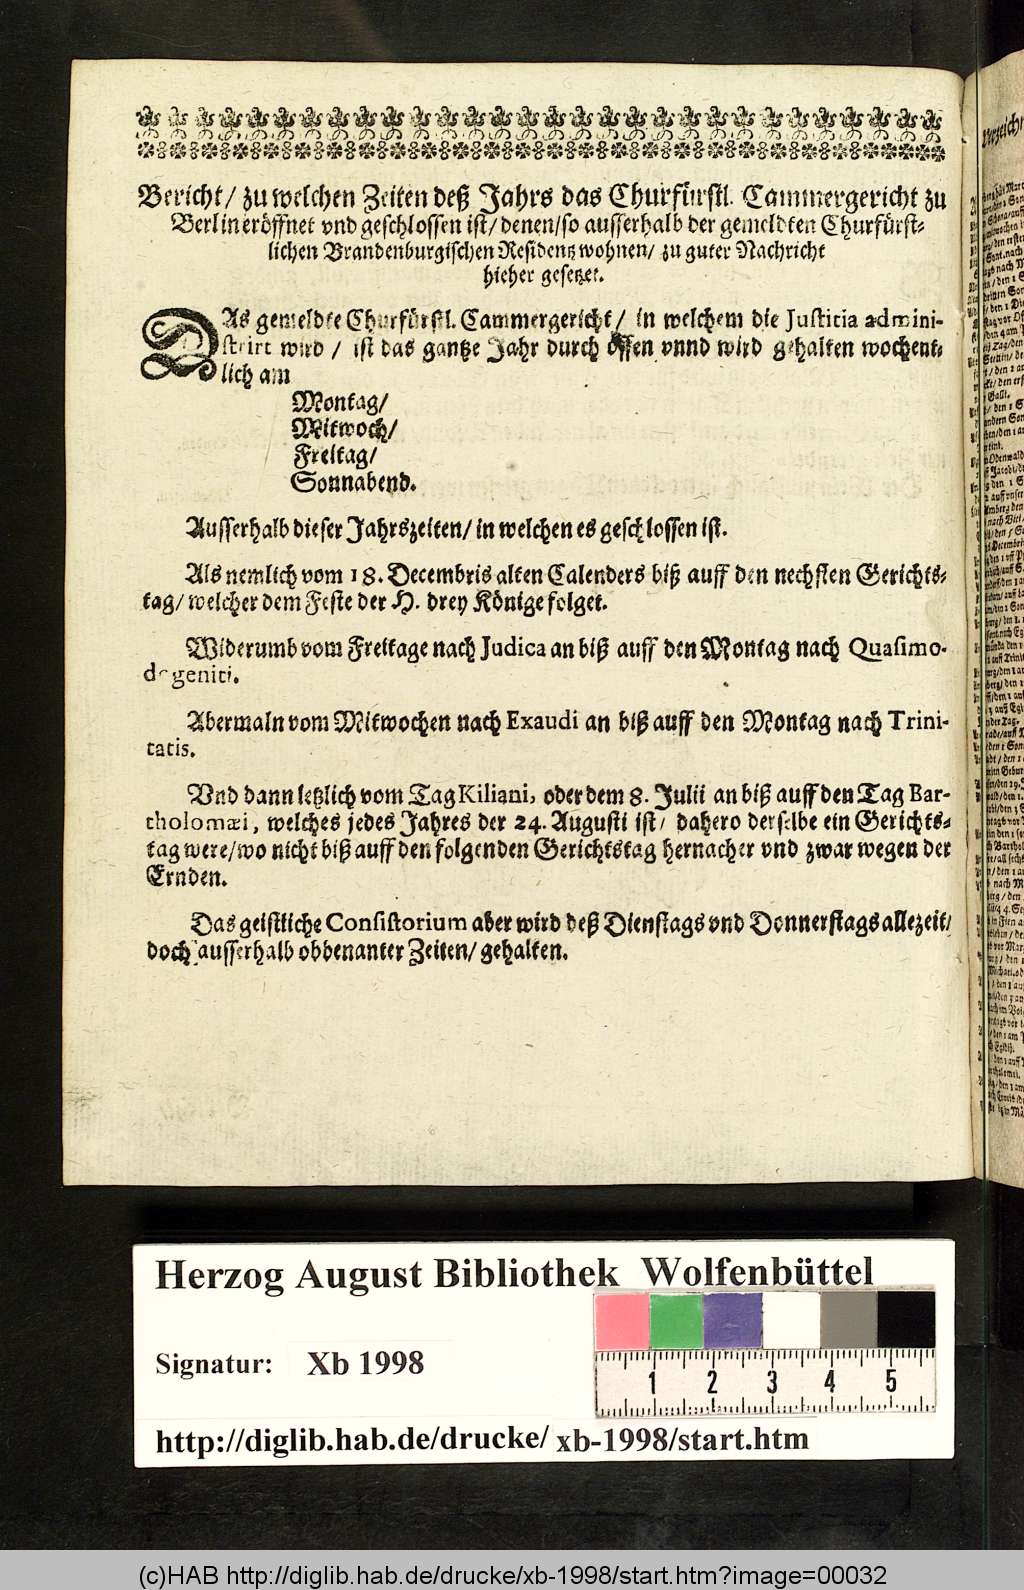 Bericht/ zu welchen Zeiten deß Jahrs das Churfürstl. Cammergericht zu
Berlin eröffnet vnd geschlossen ist/ denen/ so ausserhalb der gemeldten Churfürst-
lichen Brandenburgischen Residentz wohnen/ zu guter Nachricht
hieher gesetzet.
DAs gemeldte Churfürstl. Cammergericht/ in welchem die Justitia admini-
strirt wird / ist das gantze Jahr durch offen vnnd wird gehalten wochent-
lich am
Montag/
Mitwoch/
Freitag/
Sonnabend.
Ausserhalb dieser Jahrszeiten/ in welchen es geschlossen ist.
Als nemlich vom 18. Decembris alten Calenders biß auff den nechsten Gerichts-
tag/ welcher dem Feste der H. drey Könige folget.
Widerumb vom Freitage nach Judica an biß auff den Montag nach Quasimo-
dogeniti.
Abermaln vom Mitwochen nach Exaudi an biß auff den Montag nach Trini-
tatis.
Vnd dann letzlich vom Tag Kiliani, oder dem 8. Julii an biß auff den Tag Bar-
tholomæi, welches jedes Jahres der 24. Augusti ist/ dahero derselbe ein Gerichts-
tag were/ wo nicht biß auff den folgenden Gerichtstag hernacher vnd zwar wegen der
Ernden.
Das geistliche Consistorium aber wird deß Dienstags vnd Donnerstags allezeit/
doch ausserhalb obbenanter Zeiten/ gehalten.
Herzog August Bibliothek Wolfenbüttel
Signatur: Xb 1998
1 2 3 4 5
http://diglib.hab.de/drucke/ xb-1998/start.htm
(c)HAB http://diglib.hab.de/drucke/xb-1998/start.htm?image=00032